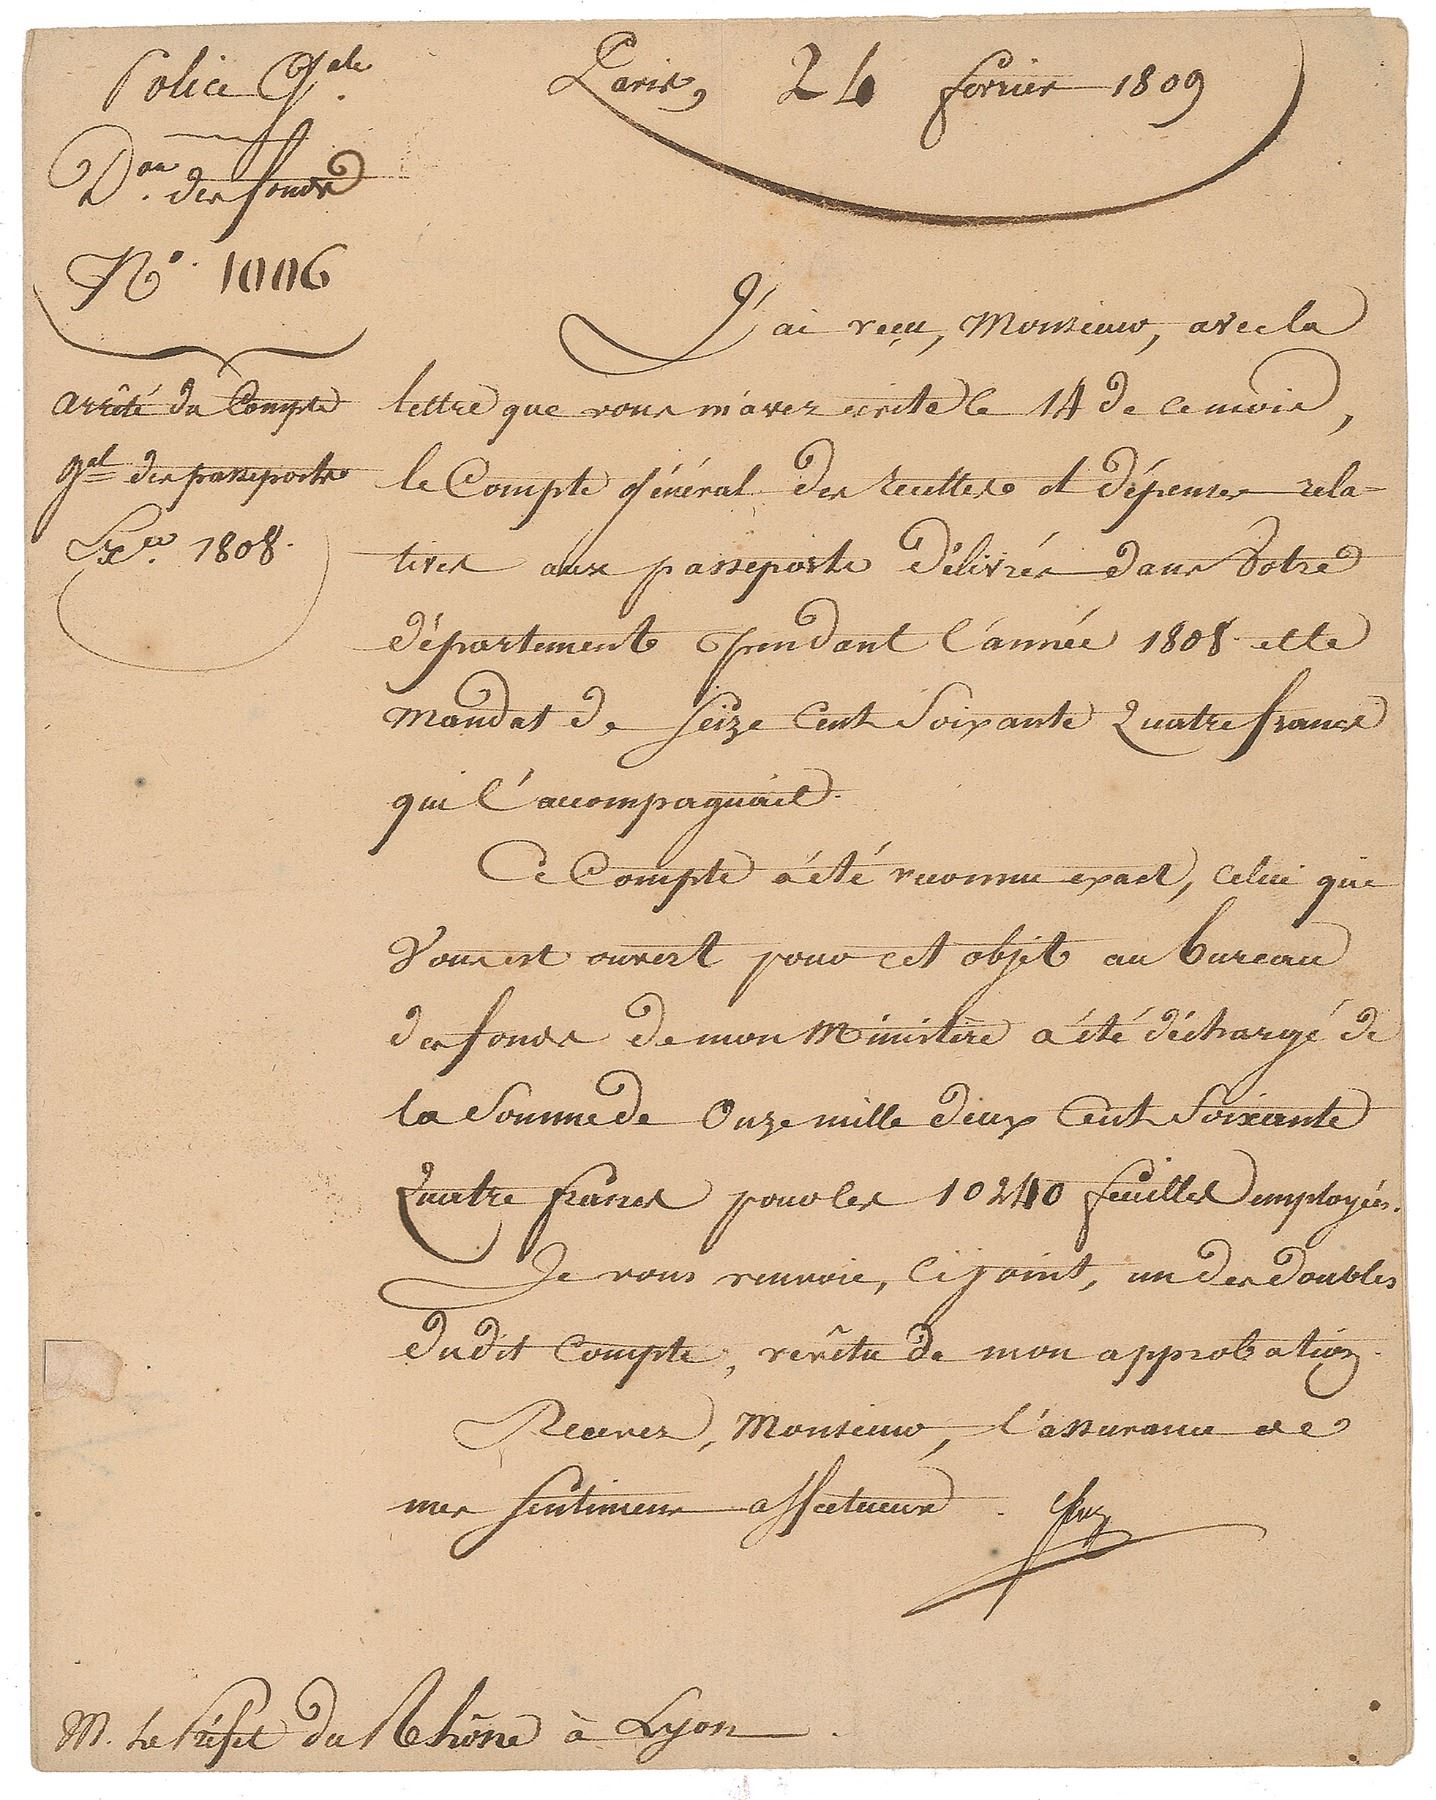 Police Gale.
Paris, 24 février 1809
Don. des fonds
N° 1006
arrêté du Compte
gal des passeports
Exce. 1808.
J'ai reçu, Monsieur, avec la
lettre que vous m'avez écrite le 14 de ce mois,
le Compte général des recettes et dépenses rela-
tives aux passeports délivrés dans Votre
département pendant l'année 1808 et le
mandat de Seize Cent Soixante Quatre francs
qui l'accompagnait.
Ce Compte a été reconnu exact, celui qui
Vous est ouvert pour cet objet au bureau
des fonds de mon Ministère a été déchargé de
la Somme de Onze mille deux Cent Soixante
Quatre francs pour les 10240 feuilles employées.
Je vous renvoie, Ci joint, un des doubles
dudit Compte, revêtu de mon approbation.
Recevez, Monsieur, l'assurance de
mes Sentimens affectueux.
M. Le Préfet du Rhône à Lyon.